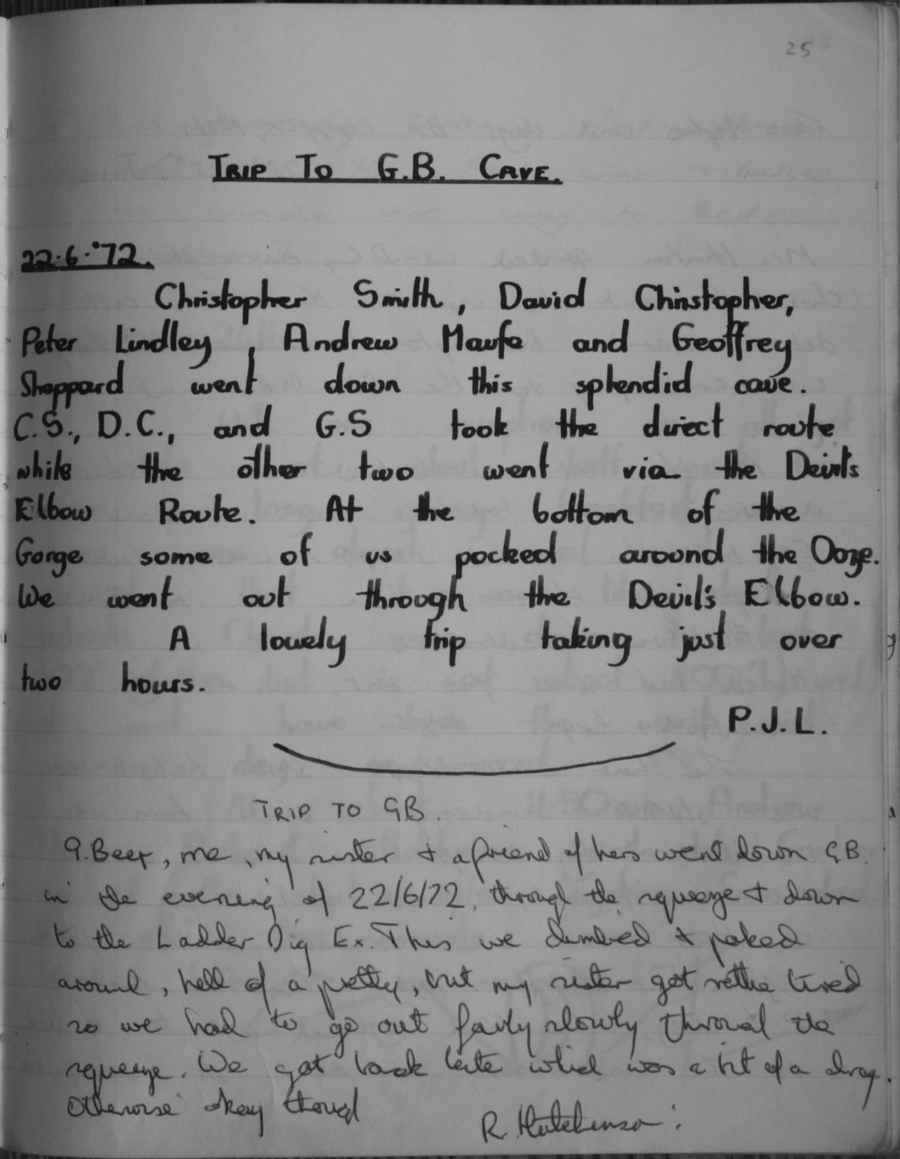 25
TRIP TO G.B. CAVE.
22·6·'72.
Christopher Smith, David Christopher,
Peter Lindley, Andrew Maufe and Geoffrey
Sheppard went down this splendid cave.
C.S., D.C., and G.S took the direct route
while the other two went via the Devil's
Elbow Route. At the bottom of the
Gorge some of us pocked around the Ooze.
We went out through the Devil's Elbow.
A lovely trip taking just over
two hours.
P.J.L.
TRIP TO GB
me, my sister + a friend of hers went down GB.
in the evening of 22/6/72, through the squeeze + down
to the Ladder Dig Ex. This we climbed + poked
around, hell of a pretty, but my sister got rather tired
so we had to go out fairly slowly through the
squeeze. We got back late which was a bit of a drag.
Otherwise okay though
R. Hutchinson.